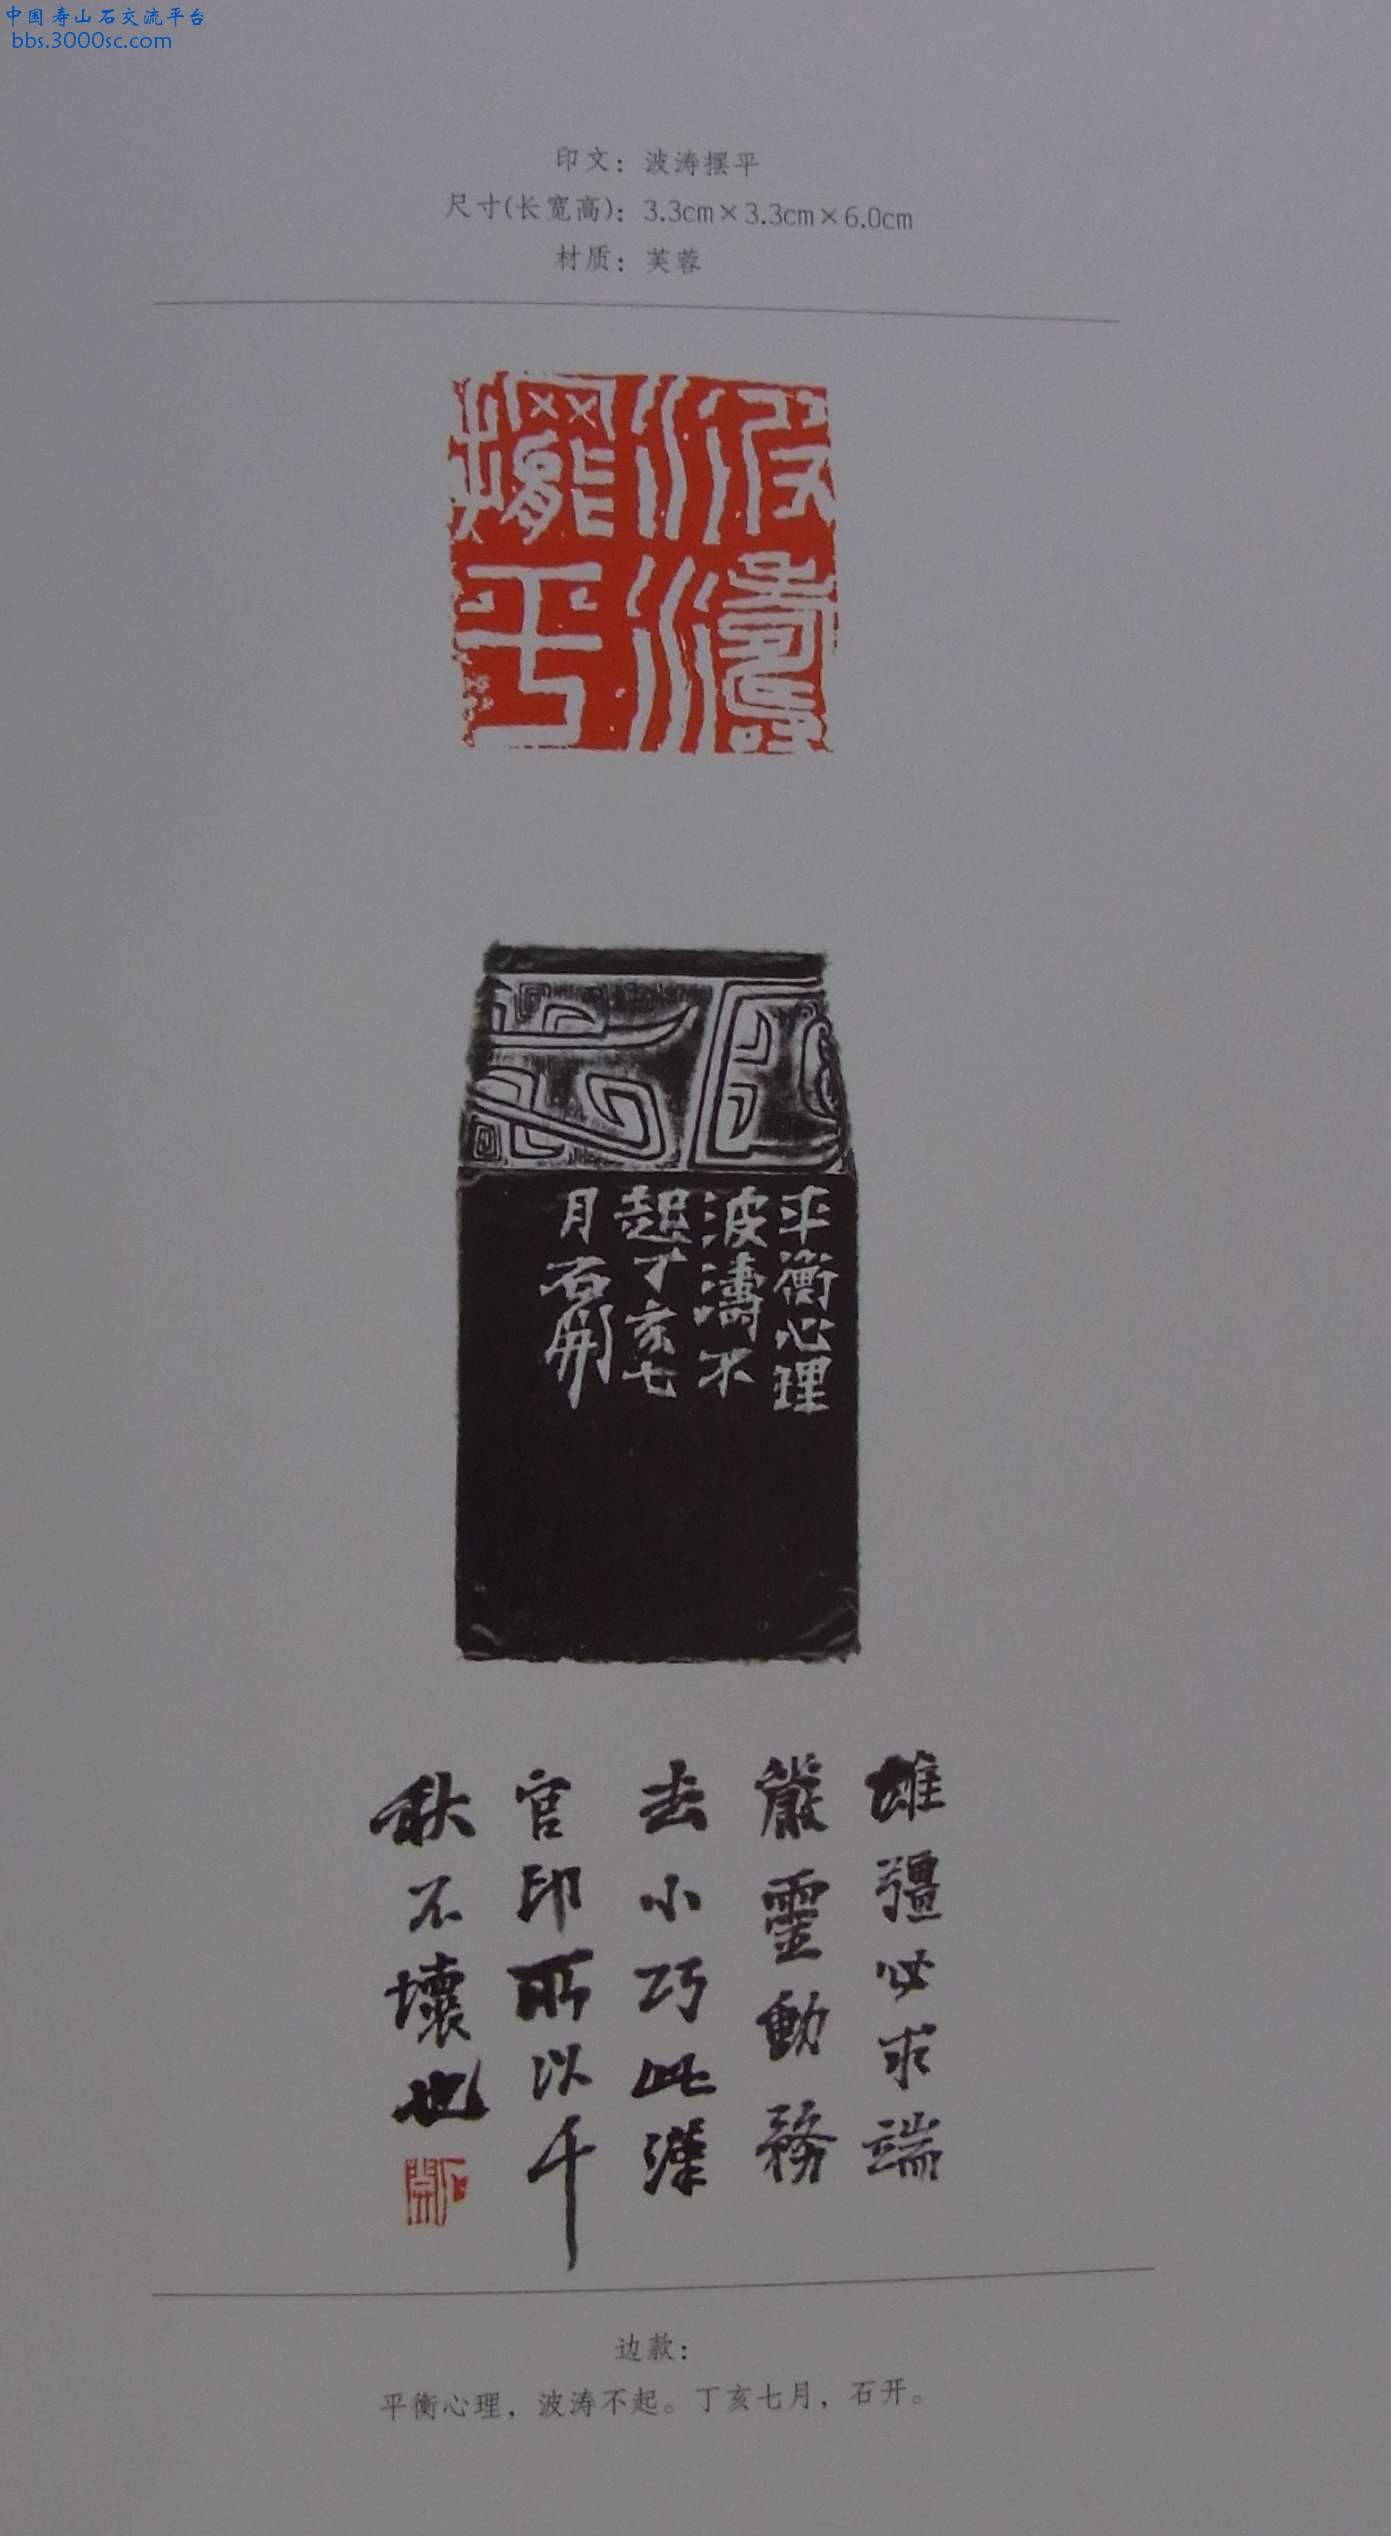 中国寿山石交流平台
bbs.3000sc.com
印文：波涛摆平
尺寸(长宽高)：3.3cm×3.3cm×6.0cm
材质：芙蓉
波濤
擺平
平衡心理
波濤不
起丁亥七
月石開
雄彊必求端
嚴靈動務
去小巧此漢
官印所以千
秋不壞也
石開
边款：
平衡心理，波涛不起。丁亥七月，石开。